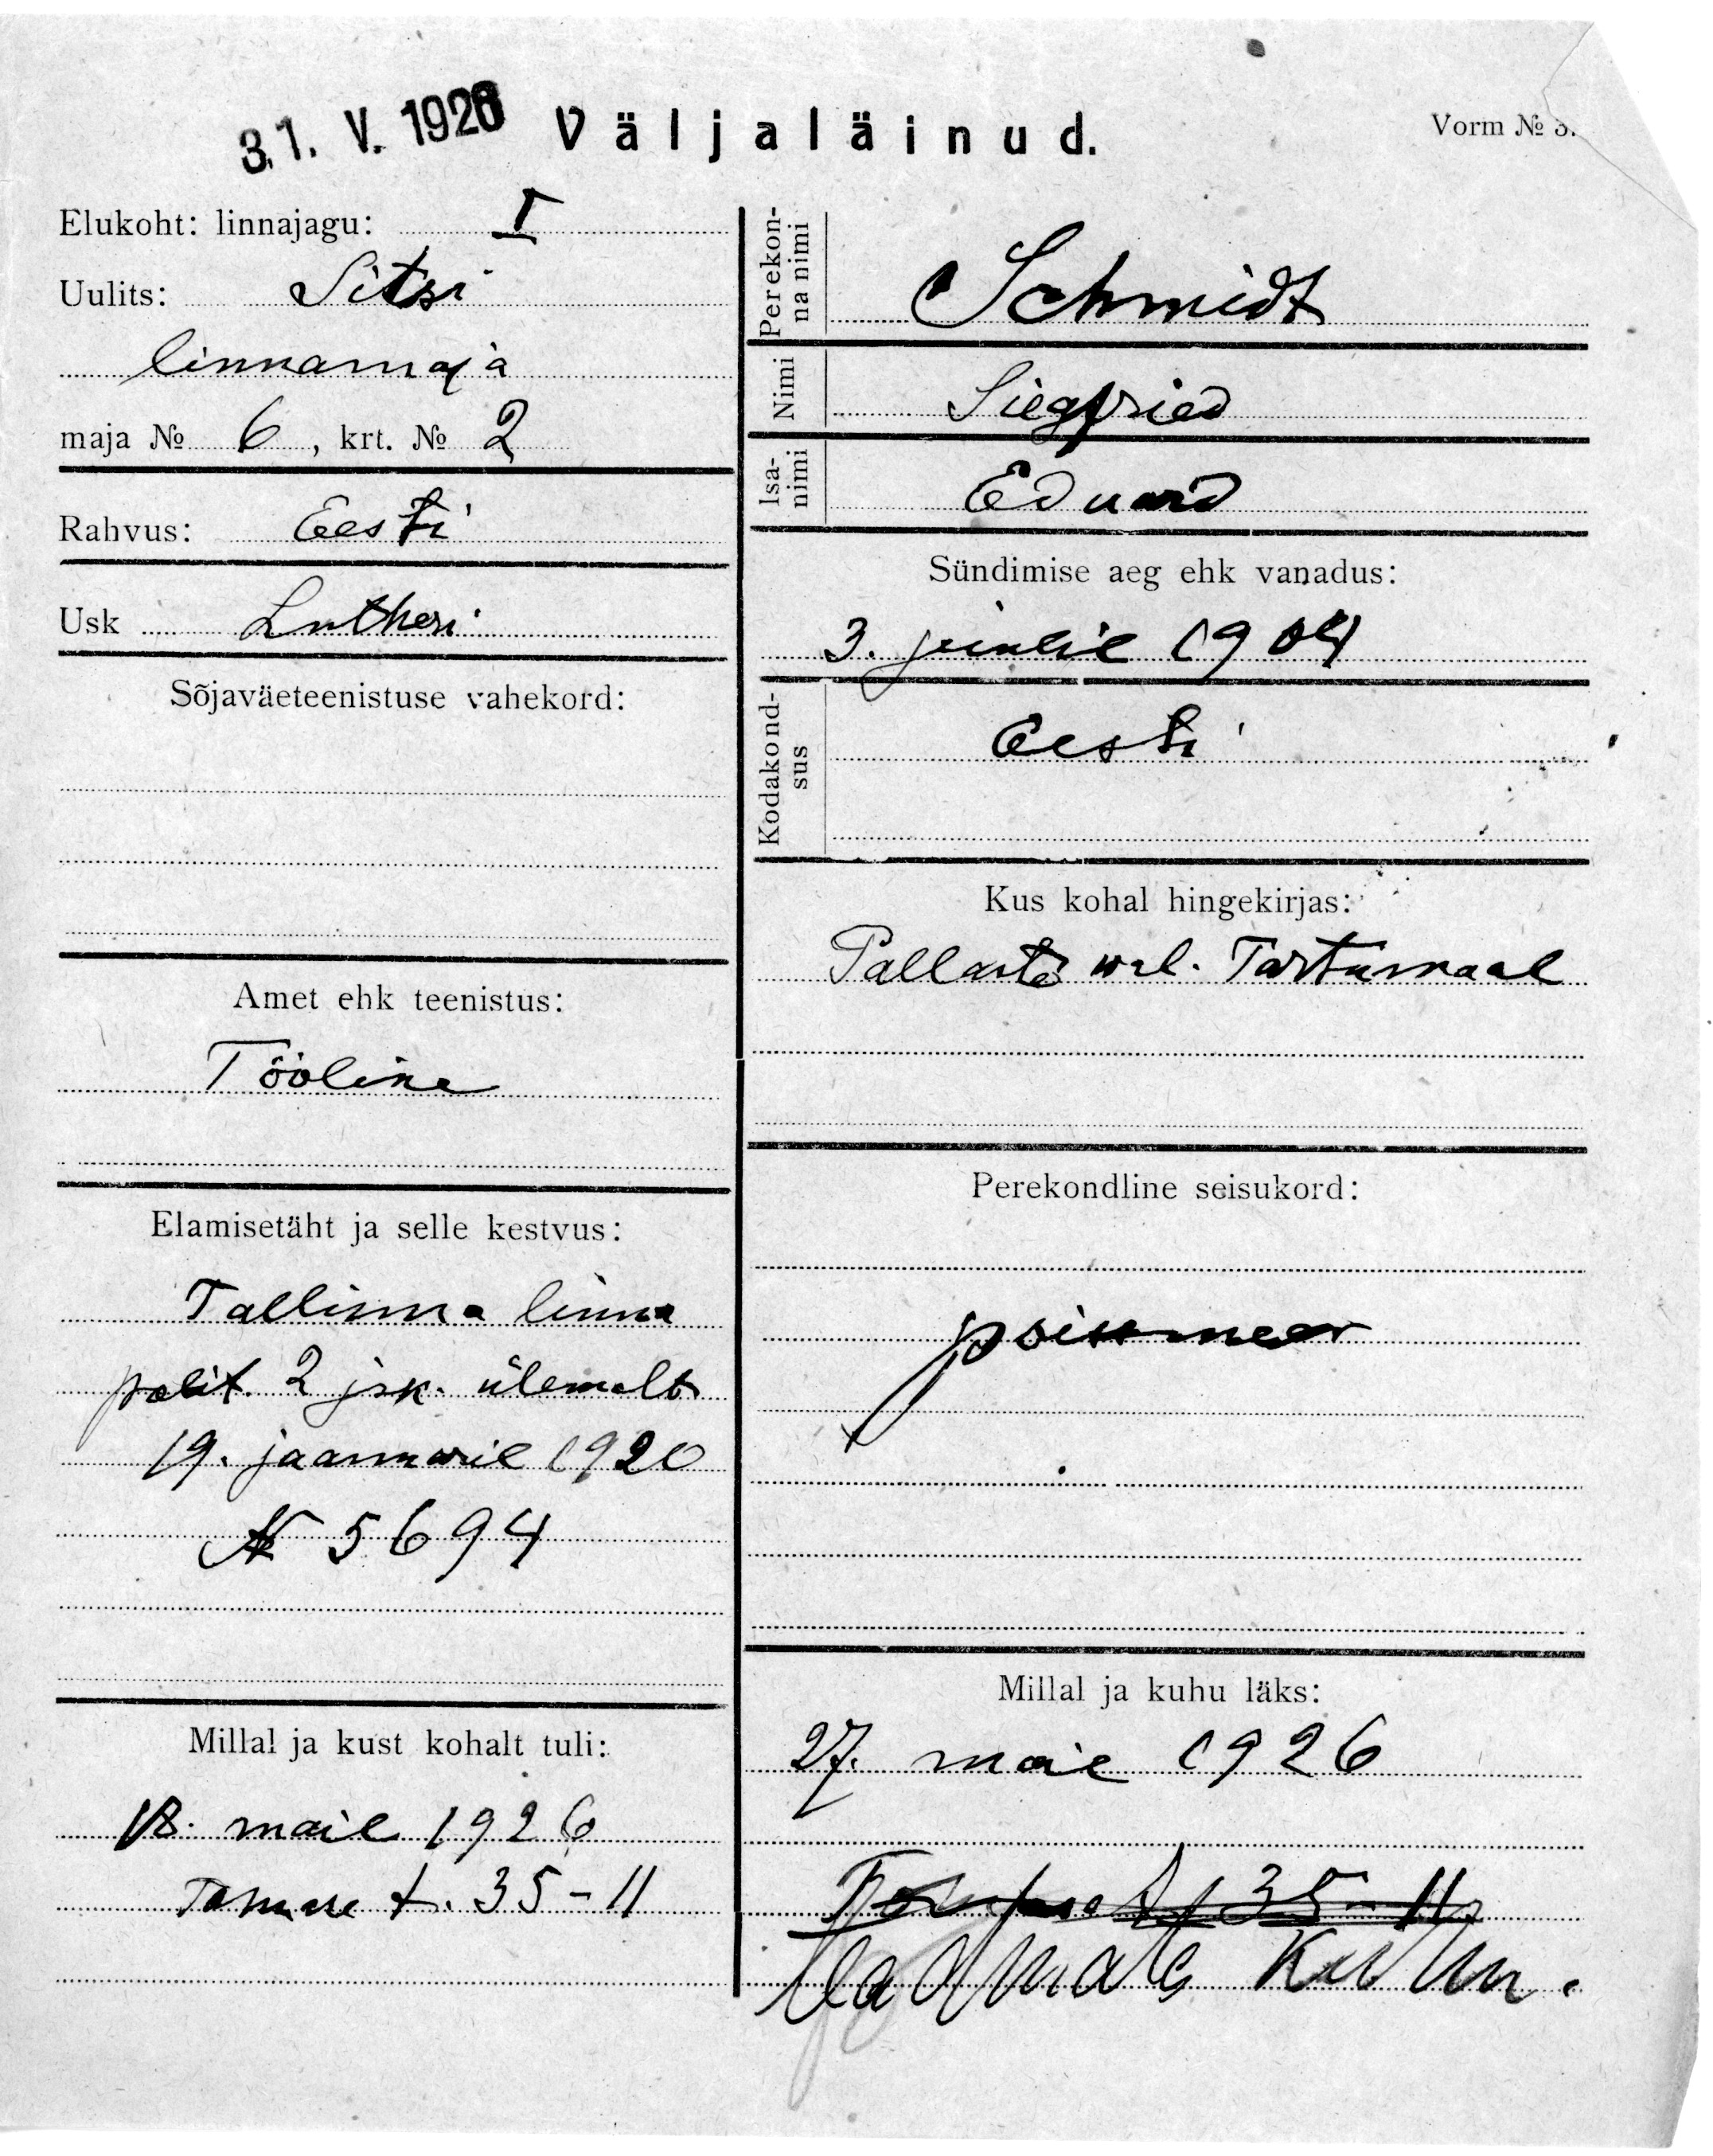 31. V. 1926 Väljaläinud.
Vorm № 3.
Elukoht: linnajagu: I
Uulits: Sitsi
linnamaja
maja № 6, krt. № 2
Rahvus: Eesti
Usk Lutheri
Sõjaväeteenistuse vahekord:
Amet ehk teenistus:
Tööline
Elamisetäht ja selle kestvus:
Tallinna linna
polit. 2 jsk. ülemalt
19. jaanuaril 1920
№ 5694
Millal ja kust kohalt tuli:
18. mail 1926
t. 35-11
Perekonna nimi
Schmidt
Nimi
Siegfried
Isanimi
Eduard
Sündimise aeg ehk vanadus:
3. 1904
Kodakondsus
Eesti
Kus kohal hingekirjas:
Tartumaal
Perekondline seisukord:
poissmees
Millal ja kuhu läks:
27. mail 1926
35-11